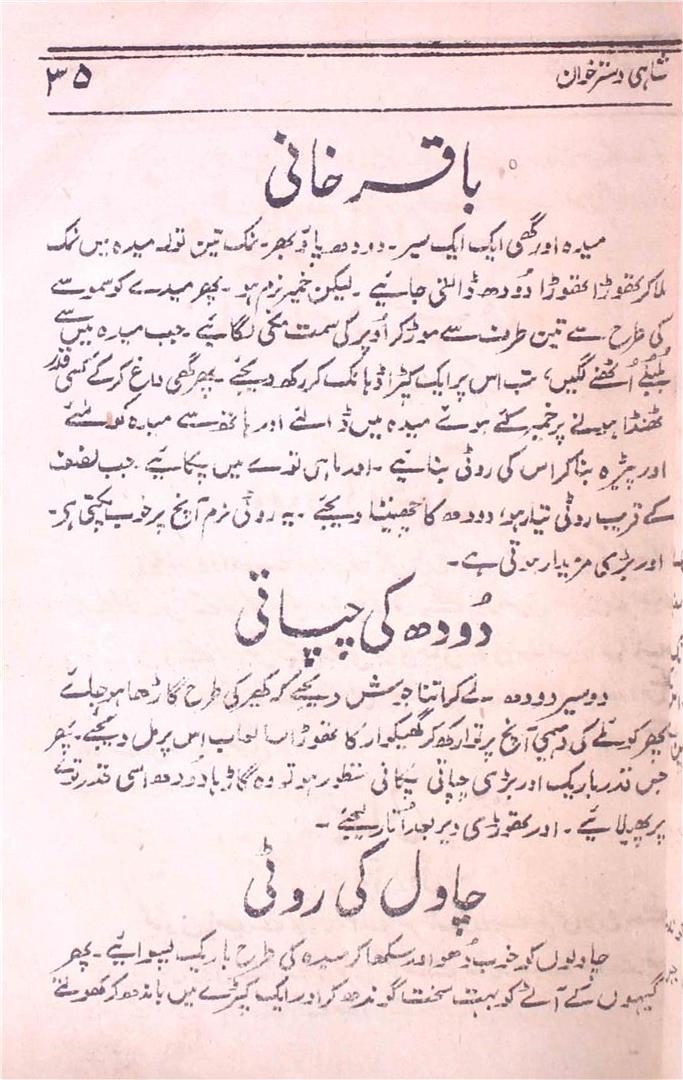 شاہی دسترخوان
۳۵
باقر خانی
میدہ اور گھی ایک ایک سیر۔ دودھ پاؤ بھر۔ نمک تین تولہ میدہ میں نمک
ملا کر تھوڑا تھوڑا دُودھ ڈالتی جائیے ۔ لیکن خمیر نرم ہو ۔ پھر میدے کو سموسے
کی طرح سے تین طرف سے موڑ کر اُوپر کی سمت مکی لگائیے ۔ جب میدہ میں سے
بلبلے اُٹھنے لگیں، تب اس پر ایک کپڑا ڈہانک کر رکھ دیجئے ۔ پھر گھی داغ کر کے کسی قدر
ٹھنڈا ہونے پر خمیر کئے ہوئے میدہ میں ڈالئے اور ہاتھ سے میدہ کو ملئے
اور پیڑہ بنا کر اس کی روٹی بنائیے ۔ اور ماہی توے میں پکائیے ۔ جب نصف
کے قریب روٹی تیار ہو، دودھ کا چھینٹا دیجئے ۔ یہ روٹی نرم آنچ پر خوب پکتی ہے۔
اور بڑی مزیدار ہوتی ہے ۔
دُودھ کی چپاتی
دو سیر دودھ لے کر اتنا جوش دیجئے کہ کھیر کی طرح گاڑھا ہو جائے
پھر کوئلے کی دھیمی آنچ پر توا رکھ کر گھیکوار کا تھوڑا سا لعاب اس پر مل دیجئے۔ پھر
جس قدر باریک اور بڑی چپاتی پکانی منظور ہو تو وہ گاڑہا دُودھ اسی قدر توے
پر پھیلائیے ۔ اور تھوڑی دیر بعد اُتار لیجئے ۔
چاول کی روٹی
چاولوں کو خوب دُھوا اور سکھا کر میدہ کی طرح باریک پسوائیے ۔ پھر
گیہوں کے آٹے کو بہت سخت گوندھ کر اور ایک کپڑے میں باندھ کر کھولتے